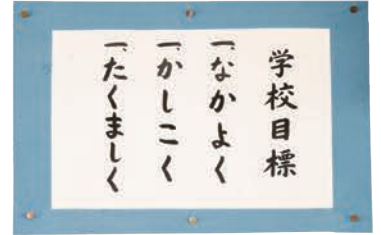 学校目標
一、なかよく
一、かしこく
一、たくましく